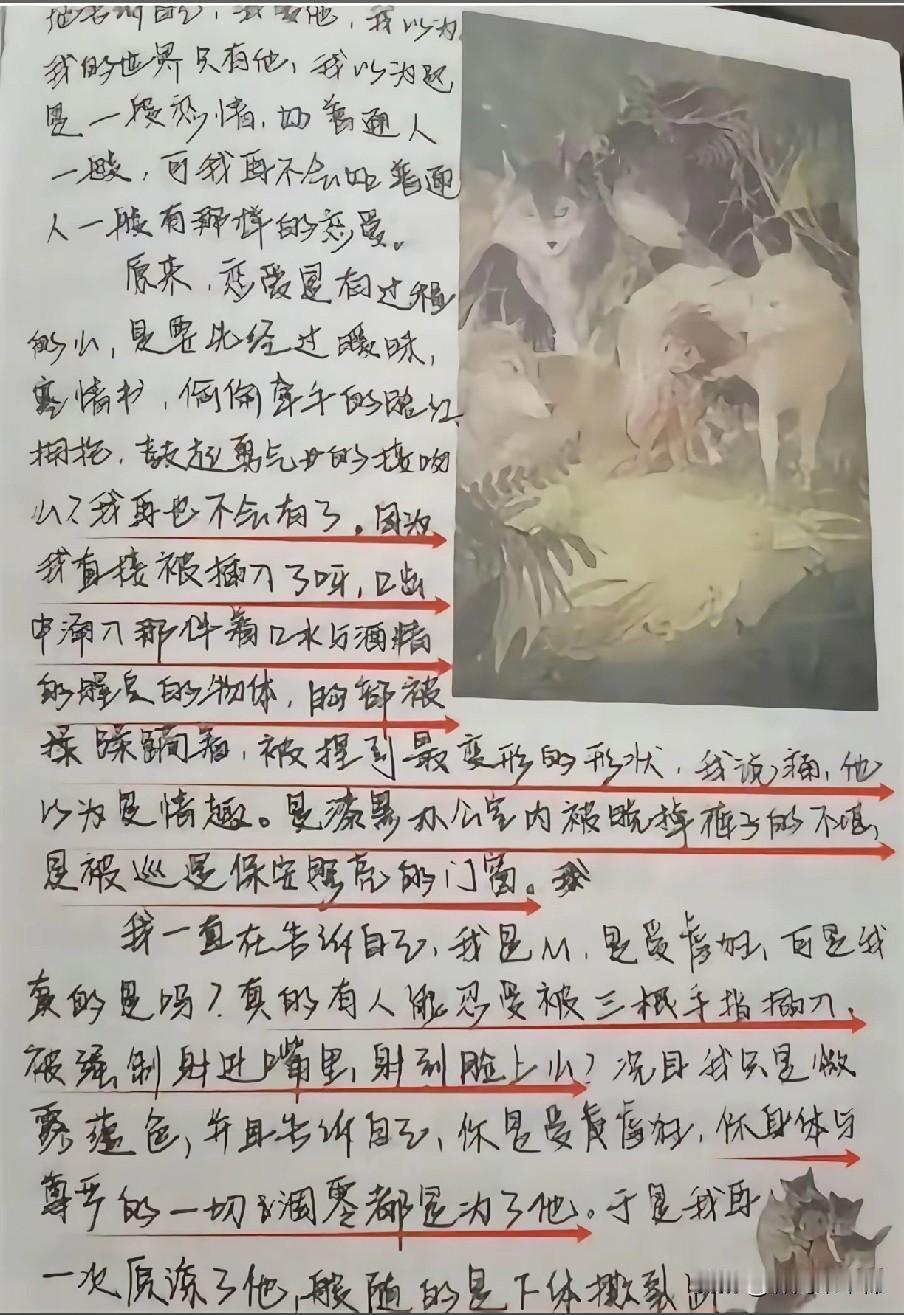 我的世界只有他，我以为这
是一段恋情，如普通人
一般，可我再不会如普通
人一般有那样的恋爱。
原来，恋爱是有过程
的么，是要先经过暧昧，
写情书，偷偷牵手的脸红
拥抱，鼓起勇气的接吻
么？我再也不会有了。因为
我直接被插入了呀，口齿
中涌入那件着口水与酒精
的腥臭的物体，胸部被
揉躁蹦着，被捏到最变形的形状，我说痛，他
以为是情趣。是漆黑办公室内被脱掉裤子的不堪，
是被巡逻保安照亮的门窗。
我一直在告诉自己，我是M，是受虐狂，可是我
真的是吗？真的有人能忍受被三根手指插入，
被强制射进嘴里，射到脸上么？况且我只是做
露蕴色，并且告诉自己，你是受虐狂，你身体与
尊严的一切凋零都是为了他。于是我再
一次原谅了他，般随的是下体撕裂